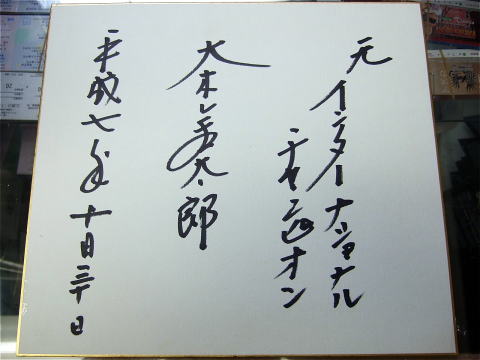 元
インターナショナル
チャンピオン
大木金太郎
平成七年十月三十日